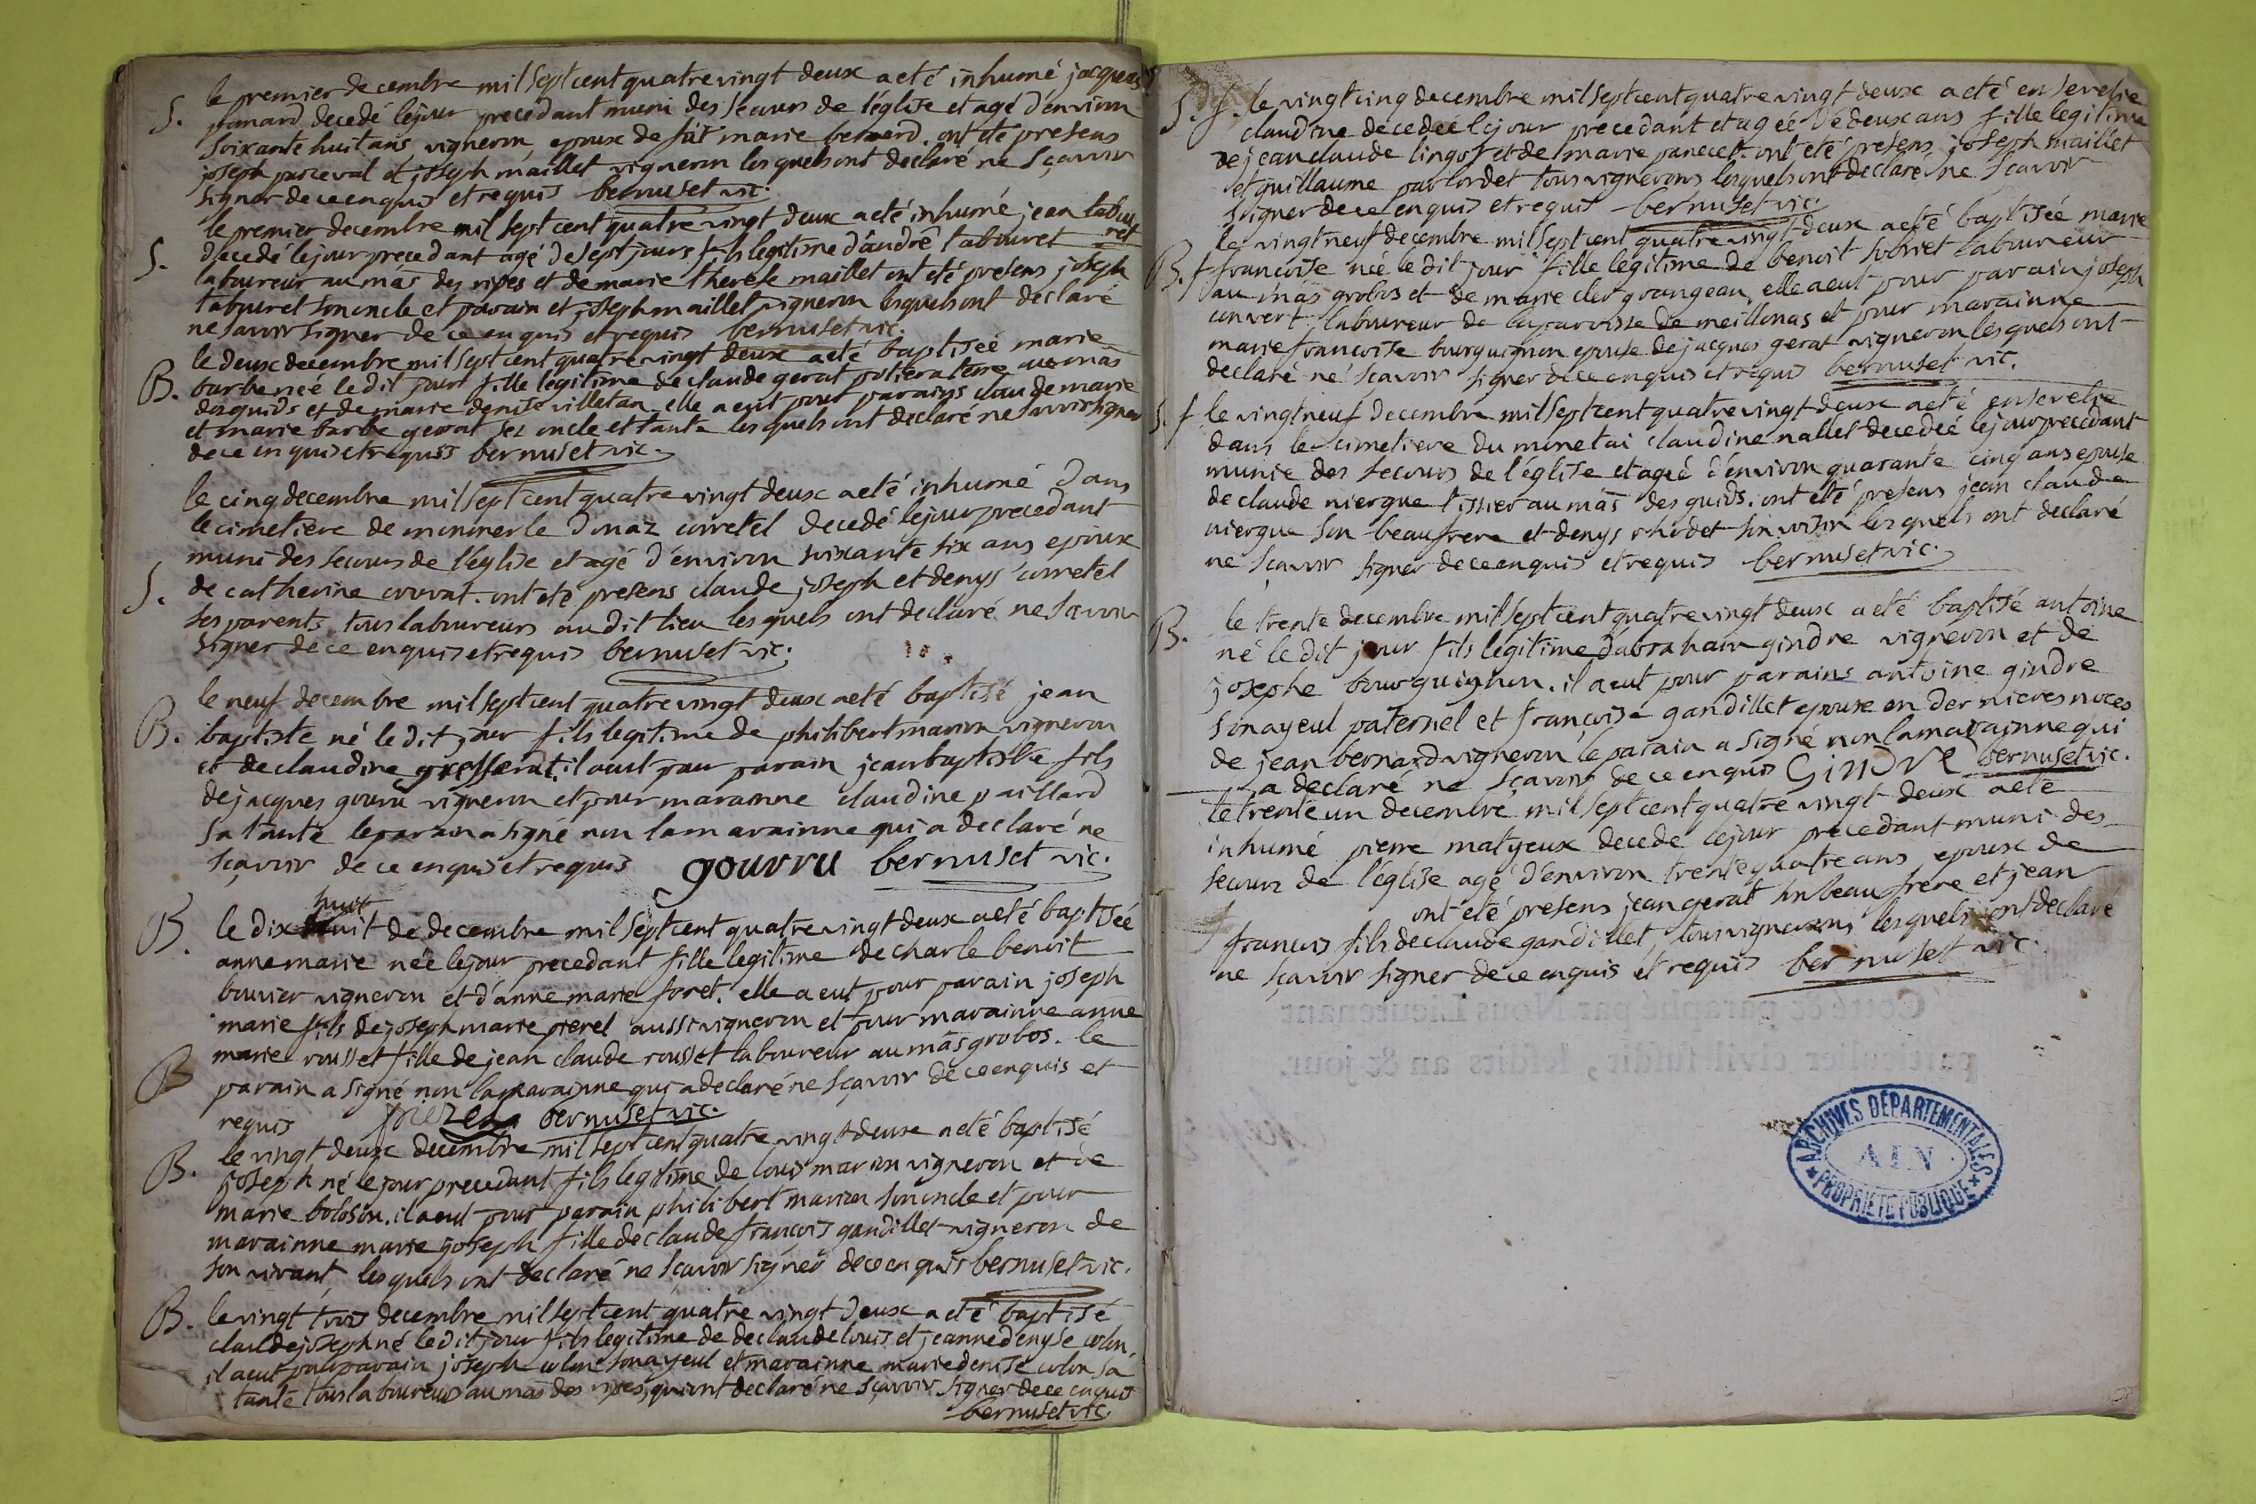 S. le premier decembre mil sept cent quatre vingt deux a eté inhumé jacques
ponard decedé le jour precedant muni des secours de l'église et agé d'environ
soixante huit ans vigneron epoux de fût marie bernard. ont été presens
joseph parceval et joseph maillet vigneron lesquels ont declaré ne sçavoir
signer de ce enquis et requis bernuset vic.
le premier decembre mil sept cent quatre vingt deux a eté inhumé jean tabou
ret
S. decedé le jour precedant agé de sept jours fils legitime d'andré tabouret
laboureur au mas des ripes et de marie therese maillet ont été presens joseph
tabouret son oncle et parain et joseph maillet vigneron lesquels ont declaré
ne savoir signer de ce enquis et requis bernuset vic.
le deux decembre mil sept cent quatre vingt deux a eté baptisée marie
B. barbe née le dit jour fille légitime de claude gerat potier a terre au mas
des guids et de marie denise villetan elle a eut pour parains claude marie
et marie barbe gerat ses oncle et tante lesquels ont declaré ne savoir signer
de ce enquis et requis bernuset vic.
le cinq decembre mil sept cent quatre vingt deux a eté inhumé dans
le cimetiere de monmerle donaz corretel decedé le jour precedant
muni des secours de l'église et agé d'environ soixante six ans epoux
S. de catherine crovat. ont été presens claude joseph et denys corretel
ses parents tous laboureurs au dit lieu lesquels ont declaré ne sçavoir
signer de ce enquis et requis bernuset vic.
le neuf decembre mil sept cent quatre vingt deux a eté baptisé jean
B. baptiste né le dit jour fils legitime de philibert marion vigneron
et de claudine gresserat, il a eut pour parain jean baptiste fils
de jacques gouru vigneron et pour marainne claudine paillard
sa tante le parain a signé non la marainne qui a declaré ne
sçavoir de ce enquis et requis gouvru bernuset vic.
huit
B. le dix huit de decembre mil sept cent quatre vingt deux a eté baptisée
anne marie née le jour precedant fille legitime de charle benoit
bouvier vigneron et d'anne marie foret. elle a eut pour parain joseph
marie fils de joseph marie pierel aussi vigneron et pour marainne anne
marie rousset fille de jean claude rousset laboureur au mas grobos. le
B parain a signé non la marainne qui a declaré ne sçavoir de ce enquis et
requis bernuset vic.
B. le vingt deux decembre mil sept cent quatre vingt deux a eté baptisé
joseph né le jour precedant fils légitime de louis marion vigneron et de
marie boloson. il a eut pour parain philibert marion son oncle et pour
marainne marie joseph fille de claude françois gandillet vigneron de
son vivant, lesquels ont declaré ne sçavoir signer de ce enquis bernuset vic.
B. le vingt trois decembre mil sept cent quatre vingt deux a eté baptisé
claude joseph né le dit jour fils legitime de de claude louis et jeanne denyse colon,
il a eut pour parain joseph colon son ayeul et marainne marie denise colon sa
tante tous laboureurs au mas des ripes, qui ont declaré ne sçavoir signer de ce enquis
bernuset vic.
S. f. le vingt cinq decembre mil sept cent quatre vingt deux a eté ensevelie
claudine decedée le jour precedant et agée de deux ans fille legitime
de jean claude lingot et de marie panecet. ont été presens joseph maillet
et guillaume parcordet tous vignerons lesquels ont declaré ne sçavoir
signer de ce enquis et requis bernuset vic.
le vingt neuf decembre mil sept cent quatre vingt deux a eté baptisée marie
B. f françoise née le dit jour fille legitime de benoit sobriet laboureur
au mas grobos et de marie cler grangean, elle a eut pour parain joseph
convert laboureur de la paroisse de meillonas et pour marainne
marie françoise bourguignon epouse de jacques gerat vigneron lesquels ont
declaré ne sçavoir signer de ce enquis et requis bernuset vic.
S. f le vingt neuf decembre mil sept cent quatre vingt deux a eté ensevelie
dans le cimetiere du monetai claudine nallet decedée le jour precedant
munie des secours de l'église et agée d'environ quarante cinq ans epouse
de claude niergue tissier au mas des guids. ont été presens jean claude
niergue son beaufrere et denys rhodet son voisin lesquels ont declaré
ne sçavoir signer de ce enquis et requis bernuset vic.
B. le trente decembre mil sept cent quatre vingt deux a eté baptisé antoine
né le dit jour fils legitime d'abraham gindre vigneron et de
josephe bourguignon. il a eut pour parains antoine gindre
son ayeul paternel et françoise gandillet epouse en dernieres noces
de jean bernard vigneron le parain a signé non la marainne qui
a declaré ne sçavoir de ce enquis Gindre bernuset vic.
le trente un decembre mil sept cent quatre vingt deux a eté
inhumé pierre matyeux decedé le jour precedant muni des
secours de l'église agé d'environ trente quatre ans, epoux de
ont été presens jean gerat son beau frere et jean
francois fils de claude gandillet, tous vignerons lesquels ont declaré
ne sçavoir signer de ce enquis et requis bernuset vic.
ARCHIVES DÉPARTEMENTALES
AIN
PROPRIÉTÉ PUBLIQUE